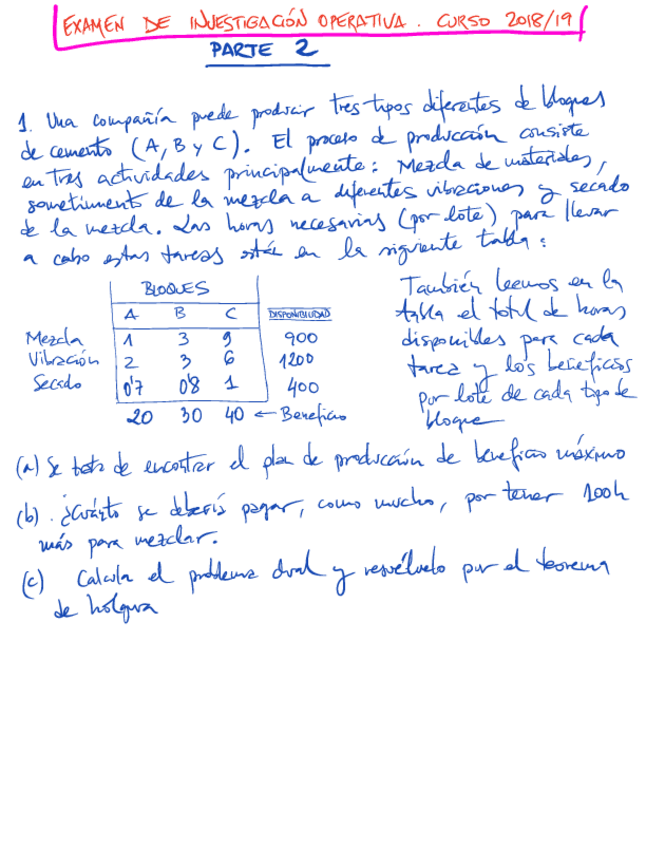 EXAMEN DE INVESTIGACIÓN OPERATIVA. CURSO 2018/19
PARTE 2
1. Una compañía puede producir tres tipos diferentes de bloques
de cemento (A, B y C). El proceso de producción consiste
en tres actividades principalmente: Mezcla de materiales,
sometimiento de la mezcla a diferentes vibraciones y secado
de la mezcla. Las horas necesarias (por lote) para llevar
a cabo estas tareas están en la siguiente tabla:
BLOQUES
A B C DISPONIBILIDAD
Mezcla 1 3 9 900
Vibración 2 3 6 1200
Secado 0'7 0'8 1 400
20 30 40 ← Beneficio
También leemos en la
tabla el total de horas
disponibles para cada
tarea y los beneficios
por lote de cada tipo de
bloque
(a) Se trata de encontrar el plan de producción de beneficio máximo
(b). ¿Cuánto se debería pagar, como mucho, por tener 100h
más para mezclar.
(c) Calcula el problema dual y resuélvelo por el teorema
de holgura